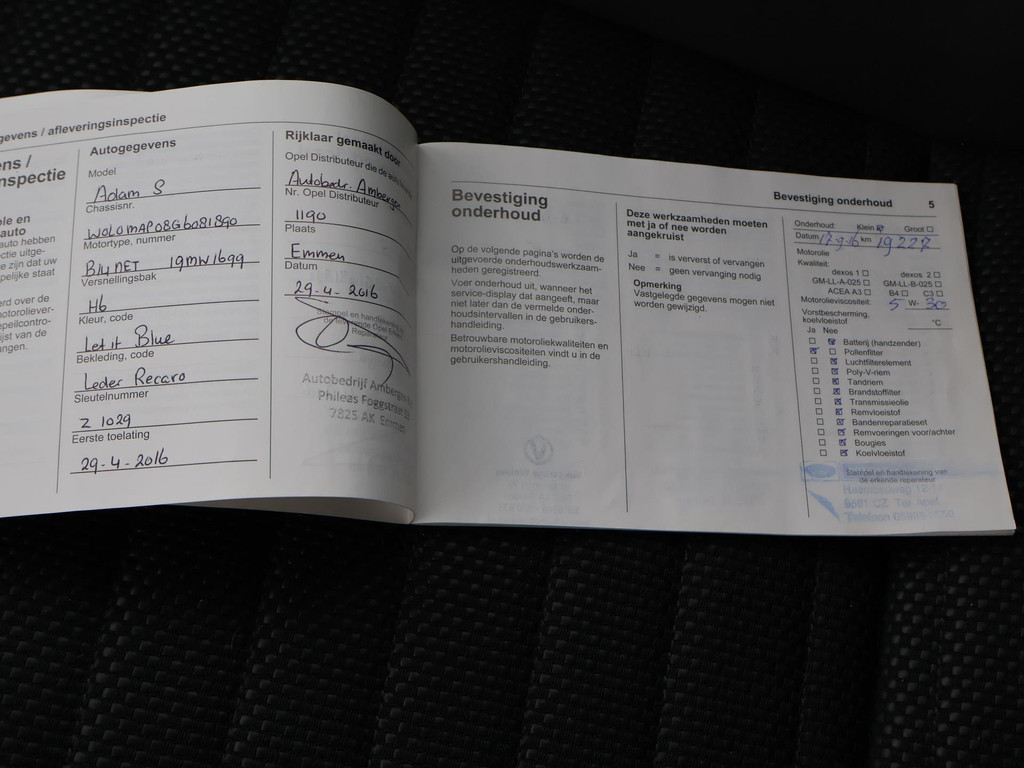 gevens / afleveringsinspectie
ens /
nspectie
ple en
auto
auto hebben
ctie uitge-
e zijn dat uw
pelijke staat
erd over de
notoroliever-
peilcontro-
ijst van de
ngen.
Autogegevens
Model
Adam S
Chassisnr.
Motortype, nummer
19MW1699
Versnellingsbak
H6
Kleur, code
Let it Blue
Bekleding, code
Leder Recaro
Sleutelnummer
Z 1029
Eerste toelating
29-4-2016
Rijklaar gemaakt door
Opel Distributeur die de auto
Autobedr. Amberge
Nr. Opel Distributeur
1190
Plaats
Emmen
Datum
29-4-2016
Stempel en handtekening
Autobedrijf Amberge
Phileas Foggstraat
7825 AK Emmen
Bevestiging
onderhoud
Op de volgende pagina's worden de
uitgevoerde onderhoudswerkzaam-
heden geregistreerd.
Voer onderhoud uit, wanneer het
service-display dat aangeeft, maar
niet later dan de vermelde onder-
houdsintervallen in de gebruikers-
handleiding.
Betrouwbare motoroliekwaliteiten en
motorolieviscositeiten vindt u in de
gebruikershandleiding.
Bevestiging onderhoud 5
Deze werkzaamheden moeten
met ja of nee worden
aangekruist
Ja = is ververst of vervangen
Nee = geen vervanging nodig
Opmerking
Vastgelegde gegevens mogen niet
worden gewijzigd.
Onderhoud: Klein Groot
Datum km 19227
Motorolie
Kwaliteit:
dexos 1 dexos 2
GM-LL-A-025 GM-LL-B-025
ACEA A3 B4 C3
Motorolieviscositeit: 5 W- 30
Vorstbescherming,
koelvloeistof °C
Ja Nee
Batterij (handzender)
Pollenfilter
Luchtfilterelement
Poly-V-riem
Tandriem
Brandstoffilter
Transmissieolie
Remvloeistof
Bandenreparatieset
Remvoeringen voor/achter
Bougies
Koelvloeistof
Stempel en handtekening van
de erkende reparateur